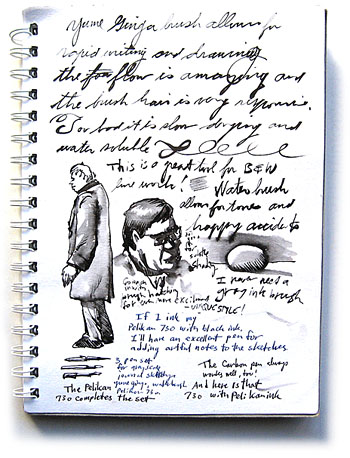 brush allows for
rapid writing and drawing
the flow is amazing and
the brush hair is very responsive.
Too bad it is slow drying and
water soluble
This is a great tool for B&W
line work!
Water brush
allows for tones and
happy accidents
I never need a
gray ink brush
If I ink my
Pelikan 730 with black ink.
I'll have an excellent pen for
adding artful notes to the sketches
5 pen set
for grayscale
journal sketching
The Pelikan
730 completes the set
The Cartoon pen always
works well, too!
And here is that
730 with Pelikan ink